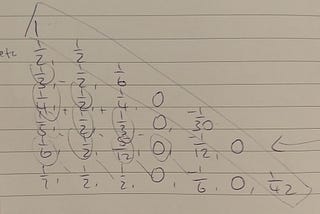 1
etc 1/2 1/2
1/3, - 1/2, 1/6
1/4, + 1/2, + 1/4, 0
1/5, - 1/2, 1/3 - 0, -1/30
1/6, 1/2, 5/12, 0, -1/12, 0
1/7, 1/2, 1/2, 0, -1/6, 0, 1/42